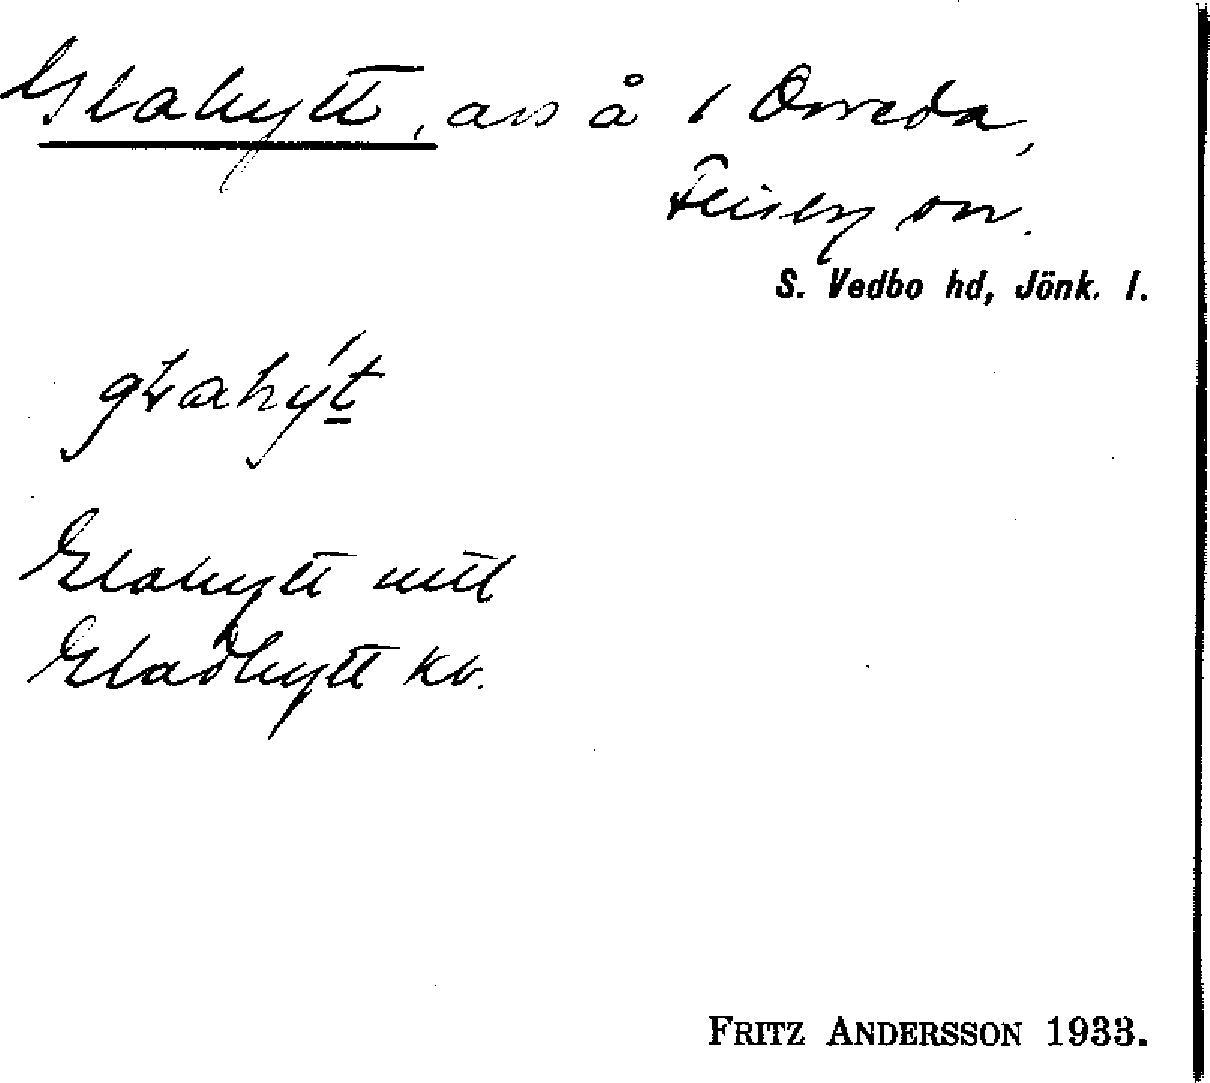 Glahytt, avs å 1 Orreda,
Flisby sn.
S. Vedbo hd, Jönk. l.
glahýt
Glahytt mtl
Gladhytt kb.
FRITZ ANDERSSON 1933.